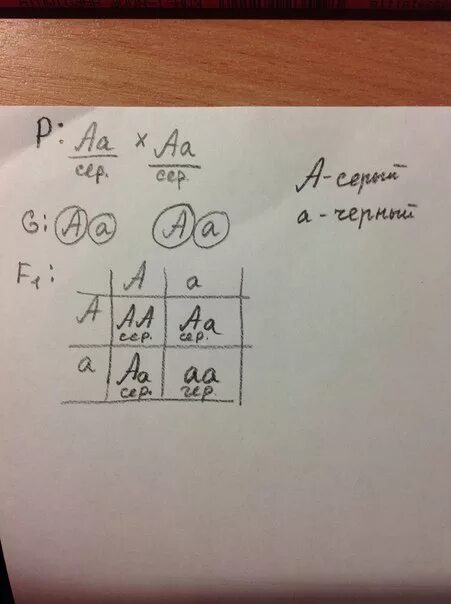 P: Aa × Aa
сер. сер.
A - серый
G: A a A a
a - черный
F₁:
A a
A AA Aa
сер. сер.
a Aa aa
сер. чер.